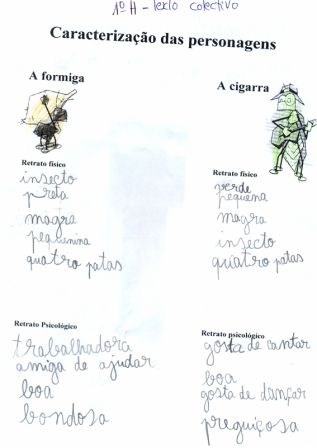 1º H - texto colectivo
Caracterização das personagens
A formiga
Retrato físico
insecto
preta
magra
pequenina
quatro patas
Retrato Psicológico
trabalhadora
amiga de ajudar
boa
bondosa
A cigarra
Retrato físico
verde
pequena
magra
insecto
quatro patas
Retrato psicológico
gosta de cantar
boa
gosta de dançar
preguiçosa